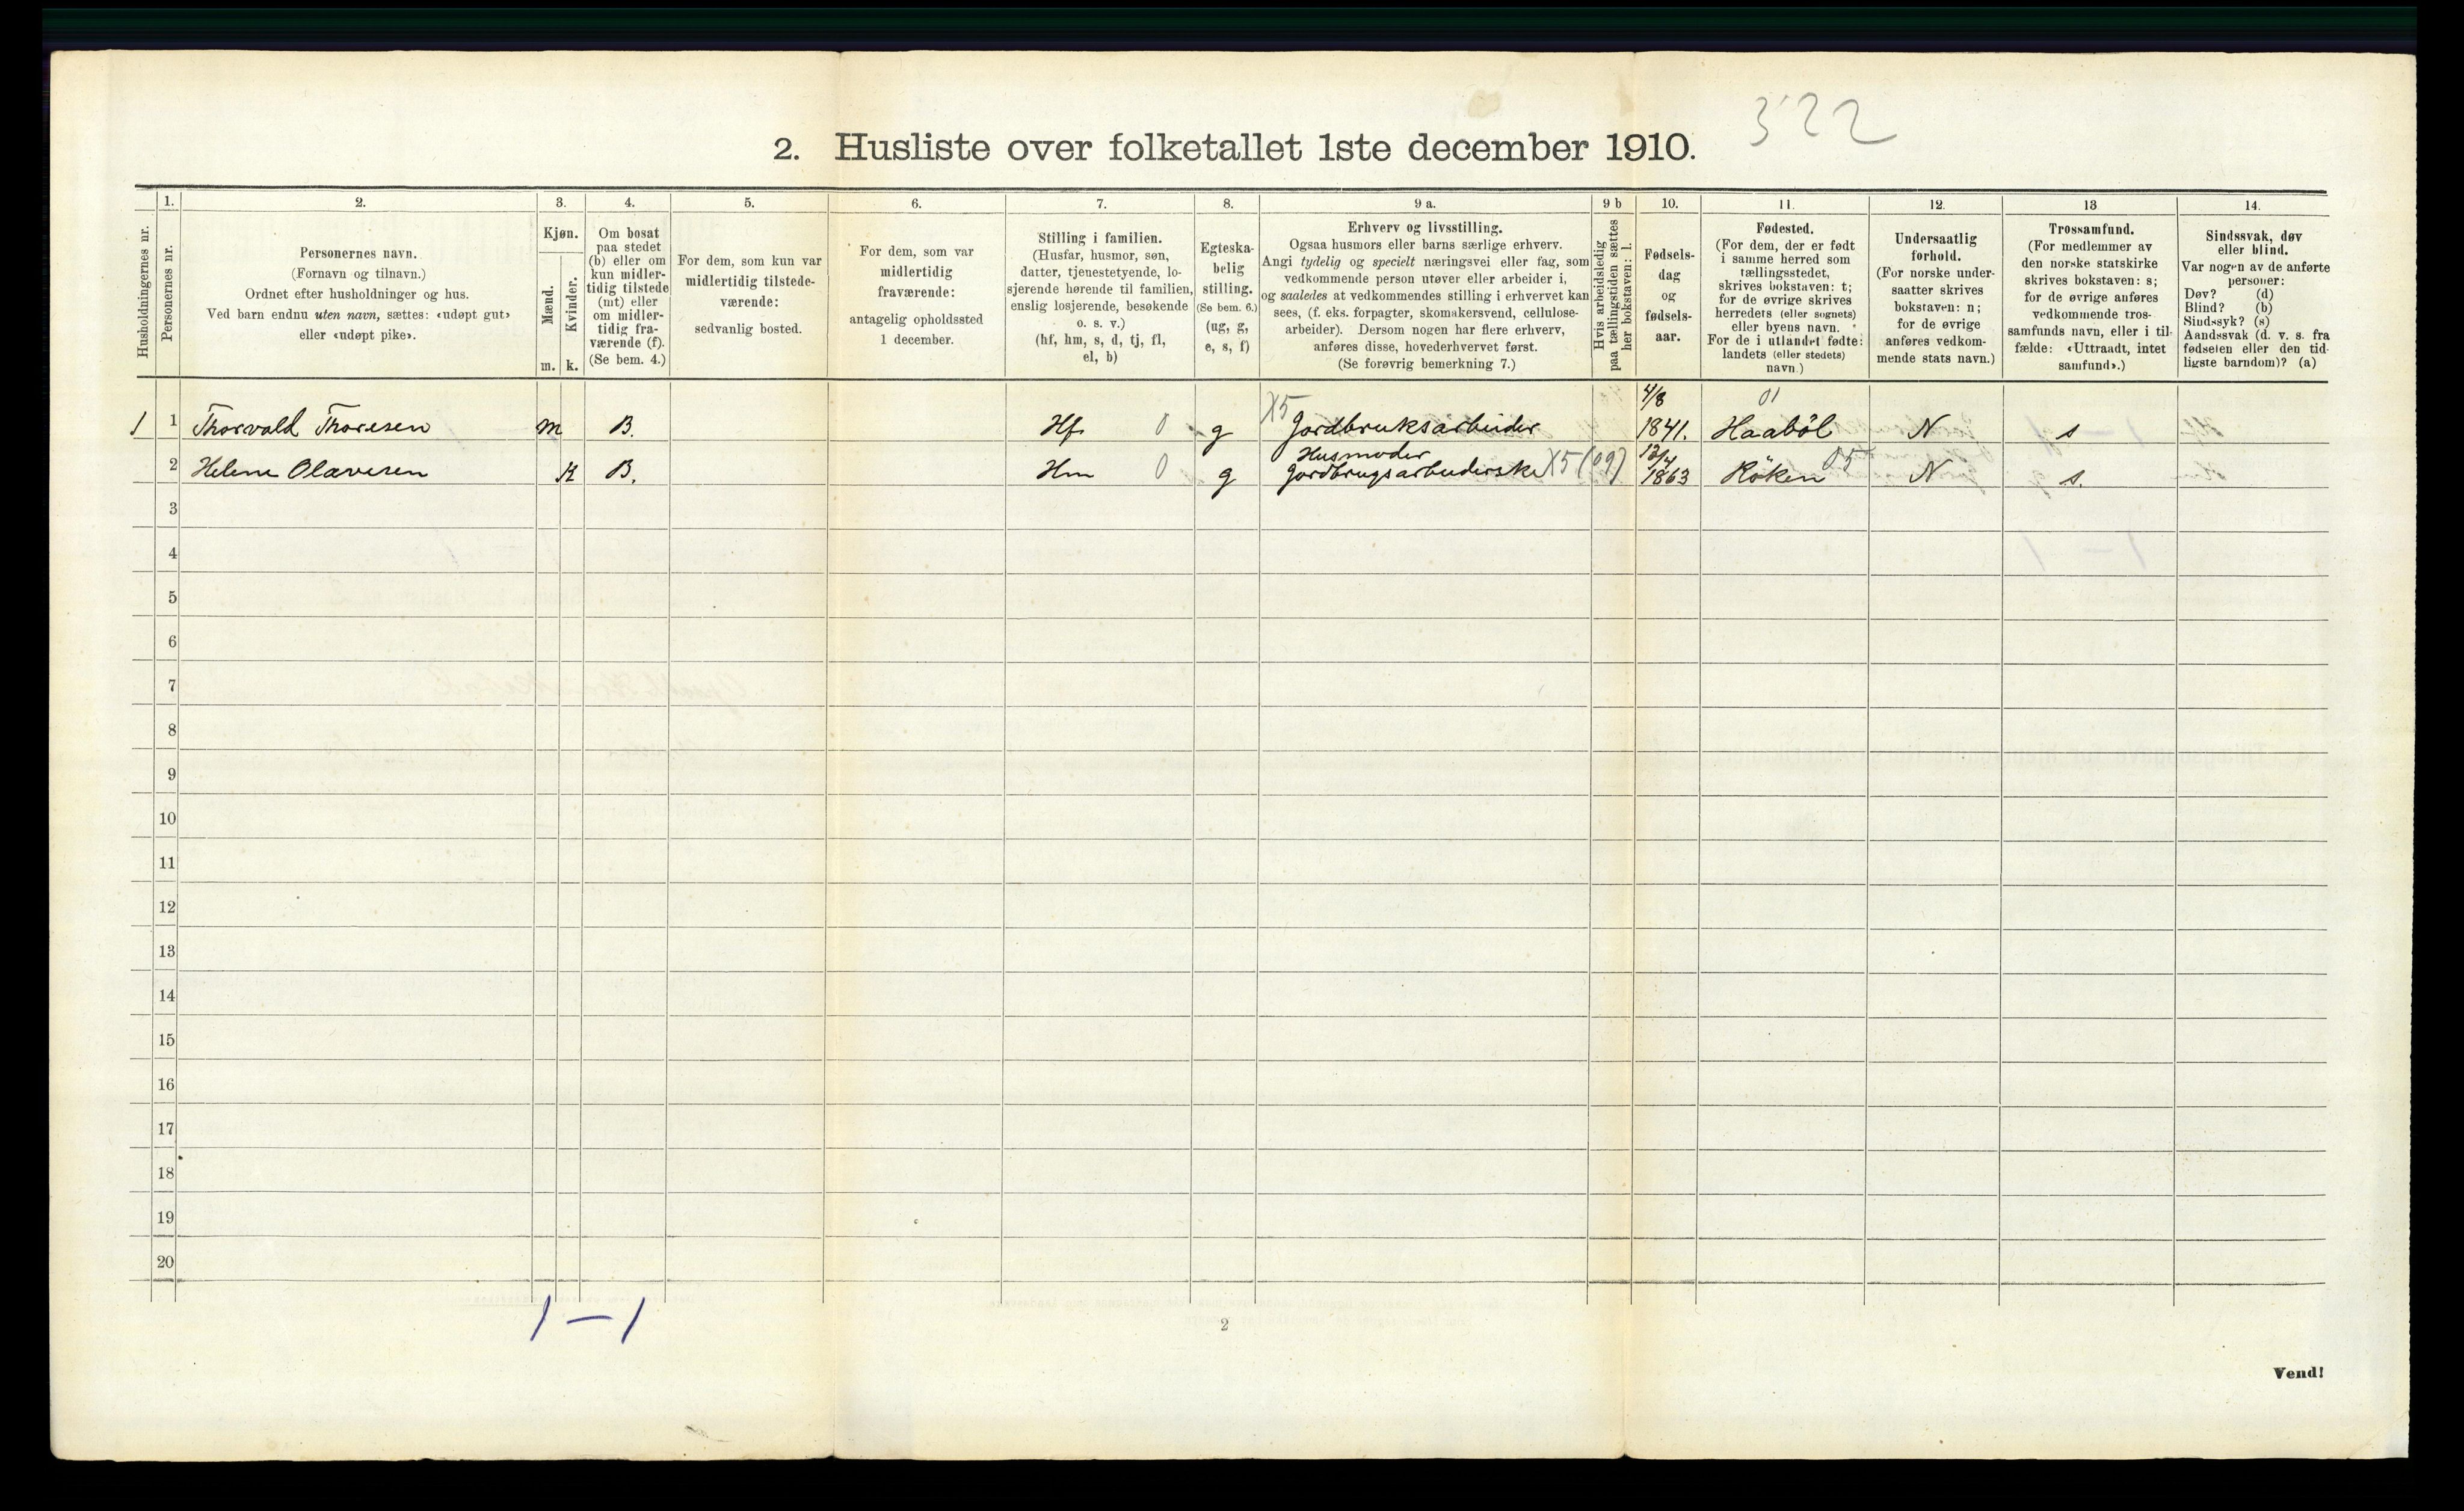 322
2. Husliste over folketallet 1ste december 1910.
Husholdningernes nr.
1.
Personernes nr.
2.
Personernes navn.
(Fornavn og tilnavn.)
Ordnet efter husholdninger og hus.
Ved barn endnu uten navn, sættes: «udøpt gut»
eller «udøpt pike».
3.
Kjøn.
Mænd.
Kvinder.
m. k.
4.
Om bosat
paa stedet
(b) eller om
kun midler-
tidig tilstede
(mt) eller
om midler-
tidig fra-
værende (f).
(Se bem. 4.)
5.
For dem, som kun var
midlertidig tilstede-
værende:
sedvanlig bosted.
6.
For dem, som var
midlertidig
fraværende:
antagelig opholdssted
1 december.
7.
Stilling i familien.
(Husfar, husmor, søn,
datter, tjenestetyende, lo-
sjerende hørende til familien,
enslig losjerende, besøkende
o. s. v.)
(hf, hm, s, d, tj, fl,
el, b)
8.
Egteska-
belig
stilling.
(Se bem. 6.)
(ug, g,
e, s, f)
9 a.
Erhverv og livsstilling.
Ogsaa husmors eller barns særlige erhverv.
Angi tydelig og specielt næringsvei eller fag, som
vedkommende person utøver eller arbeider i,
og saaledes at vedkommendes stilling i erhvervet kan
sees, (f. eks. forpagter, skomakersvend, cellulose-
arbeider). Dersom nogen har flere erhverv,
anføres disse, hovederhvervet først.
(Se forøvrig bemerkning 7.)
9 b
Hvis arbeidsledig
paa tællingstiden sættes
her bokstaven: l.
10.
Fødsels-
dag
og
fødsels-
aar.
11.
Fødested.
(For dem, der er født
i samme herred som
tællingsstedet,
skrives bokstaven: t;
for de øvrige skrives
herredets (eller sognets)
eller byens navn.
For de i utlandet fødte:
landets (eller stedets)
navn.)
12.
Undersaatlig
forhold.
(For norske under-
saatter skrives
bokstaven: n;
for de øvrige
anføres vedkom-
mende stats navn.)
13
Trossamfund.
(For medlemmer av
den norske statskirke
skrives bokstaven: s;
for de øvrige anføres
vedkommende tros-
samfunds navn, eller i til-
fælde: «Uttraadt, intet
samfund».)
14.
Sindssvak, døv
eller blind.
Var nogen av de anførte
personer:
Døv? (d)
Blind? (b)
Sindssyk? (s)
Aandssvak (d. v. s. fra
fødselen eller den tid-
ligste barndom)? (a)
X5 4/8 01
1 1 Thorvald Thoresen m B. Hf 0 g Jordbruksarbeider 1841. Haabøl N s
Husmoder 12/4
2 Helene Olavesen K B. Hm 0 g Jordbrugsarbeiderske X5 (09) 1863 Røken 05 N s.
3
4
5
6
7
8
9
10
11
12
13
14
15
16
17
18
19
20
1 – 1
2
Vend!